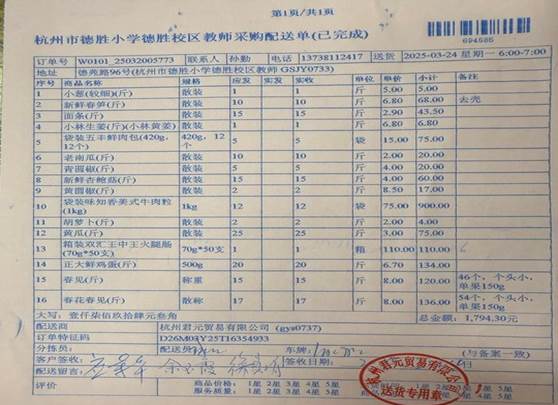 第1页/共1页
杭州市德胜小学德胜校区教师采购配送单(已完成)
694685
订单号 W0101_25032005773 联系人 孙勤 电话 13738112417 送货 2025-03-24 星期一 6:00-7:00
地址 德苑路96号(杭州市德胜小学德胜校区教师 GSJY0733)
序号 商品名称 规格 应发 实发 应收 实收 单位 单价 小计 备注
1 小葱(较细)(斤) 散装 1 1 斤 5.00 5.00
2 新鲜春笋(斤) 散装 10 10 斤 6.80 68.00 去壳
3 面条(斤) 散装 15 15 斤 2.90 43.50
4 小林生姜(斤)(小林黄姜) 散装 1 1 斤 6.80 6.80
5 袋装五丰鲜肉包(420g，12个) 420g，12个 5 5 袋 15.00 75.00
6 老南瓜(斤) 散装 10 10 斤 2.00 20.00
7 青圆椒(斤) 散装 5 5 斤 4.00 20.00
8 新鲜杏鲍菇(斤) 散装 15 15 斤 4.00 60.00
9 黄圆椒(斤) 散装 2 2 斤 8.50 17.00
10 袋装味知香美式牛肉粒(1kg) 1kg 12 12 袋 75.00 900.00
11 胡萝卜(斤) 散装 2 2 斤 2.00 4.00
12 黄瓜(斤) 散装 25 25 斤 3.00 75.00
13 箱装双汇王中王火腿肠(70g*50支) 70g*50支 1 1 箱 110.00 110.00
14 正大鲜鸡蛋(斤) 500g 20 20 斤 6.70 134.00
15 春见(斤) 称重 15 15 斤 8.00 120.00 46个，个头小，单果150g
16 春花春见(斤) 散称 17 17 斤 8.00 136.00 54个，个头小，单果150g
大写：壹仟柒佰玖拾肆元叁角 总金额：1,794.30元
配送商 杭州君元贸易有限公司 (gys0737)
订单特征码 D26M03Y25T16354933
分拣员： 配送员： 车牌： (与备案一致)
客户签收： 签收日期：
配送留言：
评价 商品价格： 1星 2星 3星 4星 5星
服务质量： 1星 2星 3星 4星 5星
杭州君元贸易有限公司
送货专用章